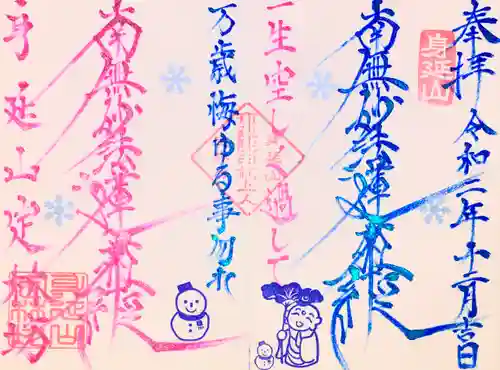 奉拝 令和二年十二月吉日
身延山
南無妙法蓮華経
一生空しく過して
万歳悔ゆる事勿れ
南無妙法蓮華経
身延山定林坊